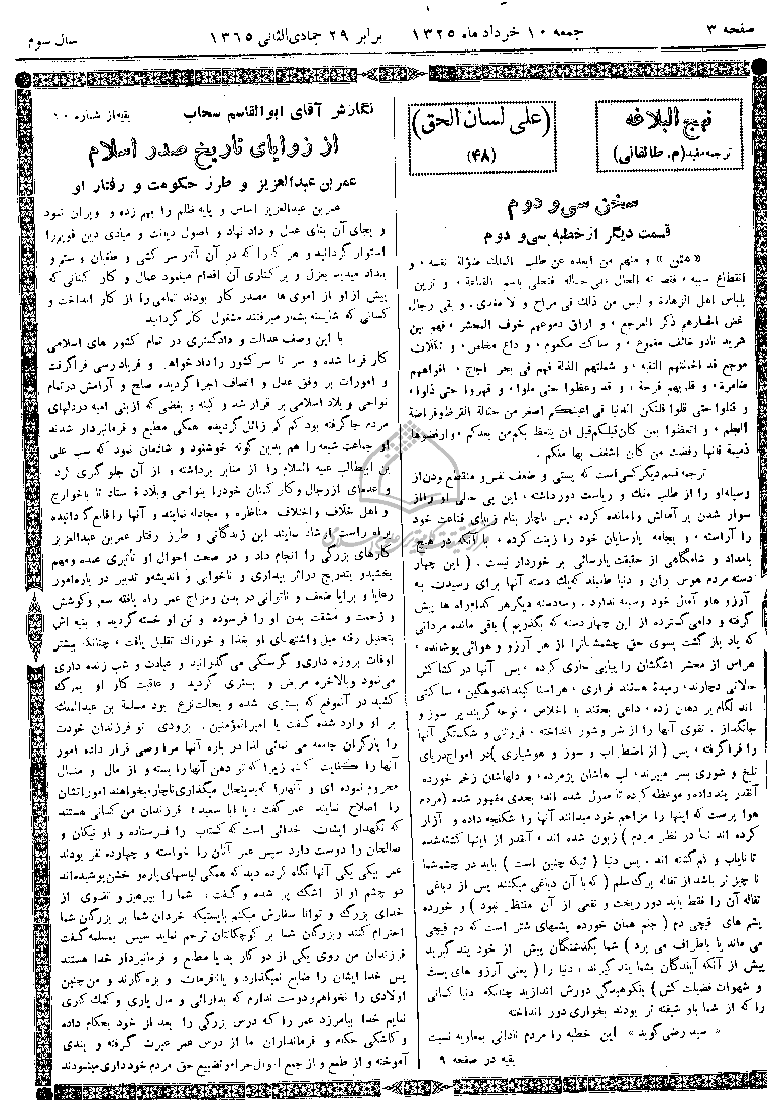 صفحه ۳
جمعه ۱۰ خرداد ماه ۱۳۲۵
برابر ۲۹ جمادی‌الثانی ۱۳۶۵
سال سوم
نهج البلاغه
ترجمه مفید (م. طالقانی)
(علی لسان الحق)
(۴۸)
سخن سی و دوم
قسمت دیگر از خطبه سی و دوم
« متن » و منهم من ابعده عن طلب الملك ضؤلة نفسه ، و
انقطاع سببه ، فقصرته الحال علی حاله فتحلی باسم القناعة ، و تزین
بلباس اهل الزهادة و لیس من ذلك فی مراح و لا مغدی . و بقی رجال
غض ابصارهم ذکر المرجع ، و اراق دموعهم خوف المحشر ، فهم بین
شرید ناد و خائف مقموع ، و ساکت مکعوم ، و داع مخلص ، و ثکلان
موجع قد اخملتهم التقیه ، و شملتهم الذلة فهم فی بحر اجاج ، افواههم
ضامزة ، و قلوبهم قرحة ، و قد وعظوا حتی ملوا ، و قهروا حتی ذلوا ،
و قتلوا حتی قلوا فلتکن الدنیا فی اعینکم اصغر من حثالة القرظ و قراضة
الجلم ، و اتعظوا بمن کان قبلکم قبل ان یتعظ بکم من بعدکم ، و ارفضوها
ذمیمة فانها رفضت من کان اشغف بها منکم .
ترجمه قسم دیگر کسی است که پستی و ضعف نفس و منقطع بودن از
وسیله او را از طلب ملك و ریاست دور داشته ، این بی حالی او را از
سوار شدن بر آمالش وامانده کرده پس ناچار بنام زیبای قناعت خود
را آراسته ، و بجامه پارسایان خود را زینت کرده ، با آنکه در هیچ
بامداد و شامگاهی از حقیقت پارسائی بر خوردار نیست . ( این چهار
دسته مردم هوس ران و دنیا طلبند که یك دسته آنها برای رسیدن به
آرزو های آمال خود وسیله ندارد . و سه دسته دیگر هر کدام راه ها پیش
گرفته و دامی گسترده از این چهار دسته که بگذریم ) باقی مانده مردانی
که یاد باز گشت بسوی حق چشمشانرا از هر آرزو و هوائی پوشانده ،
هراس از محشر اشکشان را پیاپی جاری کرده ، پس آنها در کشاکش
حالاتی دچارند، رمیدۀ هستند فراری ، هراسناکیند اندوهگین ، ساکتی
اند لگام بر دهان زده ، داعی بحقند با اخلاص ، نوحه گرند پر سوز و
جانگداز . تقوی آنها را از شر و شور انداخته ، فروتنی و شکستگی آنها
را فراگرفته ، پس ( از اضطراب و سوز و هوشیاری ) در امواج دریای
تلخ و شوری بسر میبرند، لب هاشان پژمرده ، و دلهاشان زخم خورده
آنقدر پند داده و موعظه کرده تا ملول شده اند، بحدی مقهور شده (مردم
هوا پرست که اینها را مزاحم خود میدانند آنها را شکنجه داده و آزار
کرده اند تا در نظر مردم ) زبون شده اند ، آنقدر از اینها کشته شده
تا نایاب و کم گشته اند . پس دنیا ( که چنین است ) باید در چشم شما
نا چیز تر باشد از تفاله برگ سلم ( که با آن دباغی میکنند پس از دباغی
تفاله آن را فقط باید دور ریخت و نفعی از آن منتظر نبود ) و خورده
پشم های قیچی دم ( جلم همان خورده پشمهای شتر است که دم قیچی
می ماند یا باطراف می برد ) شما بگذشتگان پیش از خود پند گیرید
پیش از آنکه آیندگان بشما پند گیرند ، دنیا را ( یعنی آرزو های پست
و شهوات فضیلت کش ) بنکوهیدگی دورش اندازید چنانکه دنیا کسانی
را که از شما باو شیفته تر بودند بخواری دور انداخته
« سید رضی گوید » این خطبه را مردم نادانی بمعاویه نسبت
بقیه در صفحه ۹
نگارش آقای ابوالقاسم سحاب
بقیه از شماره ۲۰
از زوایای تاریخ صدر اسلام
عمر بن عبدالعزیز و طرز حکومت و رفتار او
عمر بن عبدالعزیز اساس و پایه ظلم را بهم زده و ویران نمود
و بجای آن بنای عدل و داد نهاد و اصول دیانت و مبادی دین قویم را
استوار گردانید و هر کس را که در آن آثار سرکشی و طغیان و ستم و
بیداد میدید بعزل و برکناری آن اقدام مینمود عمال و کار کنانی که
پیش از او از اموی ها مصدر کار بودند تمامی را از کار انداخت و
کسانی که شایسته بشمار میرفتند مشغول کار گردانید
با این وصف عدالت و دادگستری در تمام کشور های اسلامی
کار فرما شده و سر تا سر کشور را دادخواهی و فریادرسی فراگرفت
و امورات بر وفق عدل و انصاف اجرا گردیده صلح و آرامش در تمام
نواحی و بلاد اسلامی بر قرار شد و کینه و بغضی که از بنی امیه در دلهای
مردم جا گرفته بود کم کم زائل گردیده همگی مطیع و فرمانبردار شدند
او جماعت شیعه را هم بدین گونه خوشنود و شادمان نمود که سب علی
بن ابیطالب علیه السلام را از منابر برداشته و از آن جلو گری کرد
و عده‌ای از رجال و کار کنان خود را بنواحی و بلاد فرستاد تا با خوارج
و اهل خلاف و اختلاف مناظره و مجادله نمایند و آنها را قانع گردانیده
براه راست ارشاد نمایند این زندگانی و طرز رفتار عمر بن عبدالعزیز
کارهای بزرگی را انجام داد و در صحت احوال او تأثیری عمده و مهم
بخشید و بتدریج در اثر بیداری و ناخوابی و اندیشه و تدبیر در باره امور
رعایا و برایا ضعف و ناتوانی در بدن و مزاج عمر راه یافته سعی و کوشش
و زحمت و مشقت بدن او را فرسوده و تن او خسته گردید و بنیه اش
بتحلیل رفته میل و اشتهای او بغذا و خوراك تقلیل یافت ، چنانکه بیشتر
اوقات بروزه داری و گرسنگی می گذرانید و عبادت و شب زنده داری
می نمود و بالاخره مریض و بستری گردید و عاقبت کار او بمرگ
کشید در آنموقع که بستری شده و بحالت نزع بود مسلمة بن عبدالملك
بر او وارد شده گفت یا امیرالمؤمنین ، بزودی تو فرزندان خودت
را بازگران جامعه می نمائی لذا در باره آنها مرا وصی قرار داده امور
آنها را کفایت کنم زیرا که تو دهن آنها را بسته و از مال و منال
محروم نموده ای و آنها را که بدینحال میگذاری ناچار میخواهند امورانشان
را اصلاح نمایند عمر گفت « یا ابا سعید » فرزندان من کسانی هستند
که نگهدار ایشان خدائی است که کتاب را فرستاده و او نیکان و
صالحان را دوست دارد سپس عمر آنان را خواسته و چهارده نفر بودند
عمر بیکی یکی آنها نگاه کرده دید که همگی لباسهای پاره و خشن پوشیده‌اند
دو چشم او از اشك پر شده و گفت ، شما را بپرهیز و تقوی از
خدای بزرگ و توانا سفارش میکنم بایستیکه خردان شما بر بزرگان شما
احترام کنند و بزرگان شما بر کوچکانتان ترحم نماید سپس بمسلمه گفت
فرزندان من روی یکی از دو کار بد یا مطیع و فرمانبردار خدا هستند
پس خدا ایشان را ضایع نمیگذارد و یا نافرمان و بزه کارند و من چنین
اولادی را نخواهم و دوست ندارم که بدارائی و مال یاری و کمك کاری
نمایم خدا بیامرزد عمر را که درس بزرگی را بعد از خود بحکام داده
و کاشکی حکام و فرمانداران ما از درس عمر عبرت گرفته و پندی
آموخته و از طمع و از جمع اموال حرام و تضییع حق مردم خودداری مینمودند